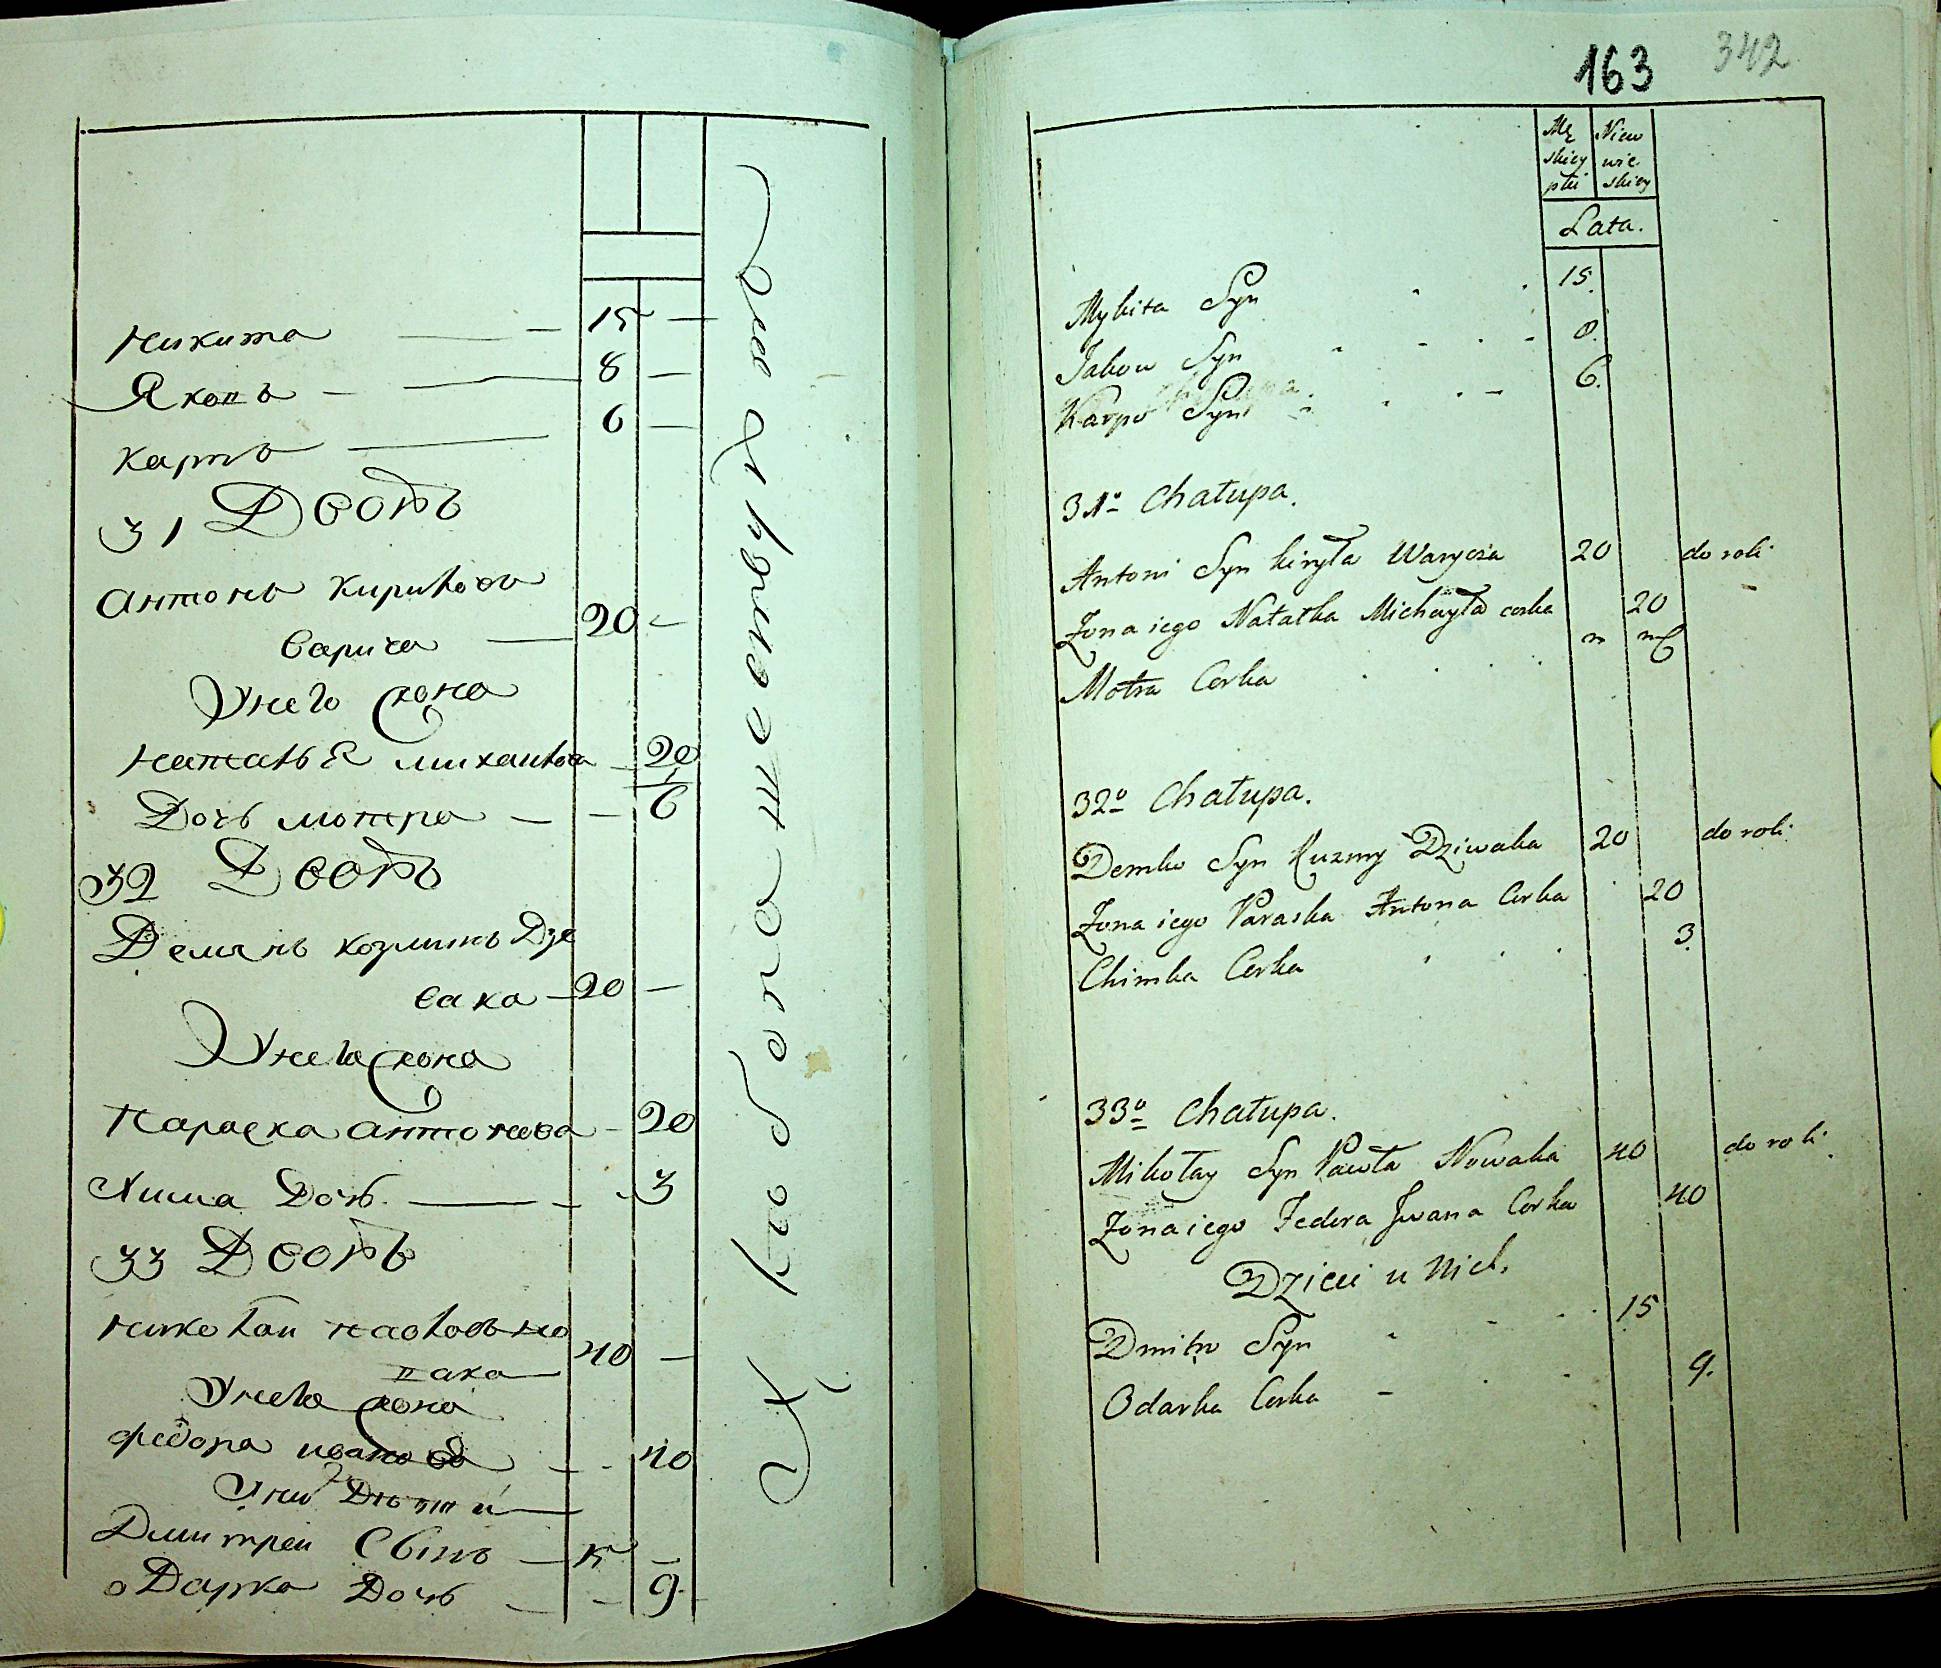 Никита — 15 —
Яковъ — 8 —
Карпъ — 6 —
31 Дворъ
Антонъ Кириловъ
Варича — 20 —
У него жона
Наталья Михаилова — 20
Дочь Мотра — — 6
32 Дворъ
Демянъ Козминъ Дзе
вака — 20 —
У него жона
Параска Антонова — 20
Хима Дочь — — 3
33 Дворъ
Николаи Павловъ но
вака — 40 —
У него жона
Федора Иванова — 40
У них Дѣти
Дмитреи Сынъ — 15 —
Одарка Дочь — — 9
163 342
Mę
skiey
płci
Niew
wie
skiey
Lata.
Mykita Syn 15.
Jakow Syn 8.
Karpo Syn 6.
31º Chałupa.
Antoni Syn kiryła Warycza 20 do roli
Zona iego Natałka Michayła corka 20
Motra Corka 6
32º Chałupa.
Demko Syn Kuzmy Dziwaka 20 do roli
Zona iego Paraska Antona Corka 20
Chimka Corka 3.
33º Chałupa.
Mikołay Syn Pawła Nowaka 40 do roli
Zona iego Fedora Jwana Corka 40
Dzieci u Nich.
Dmitro Syn 15
Odarka Corka 9.